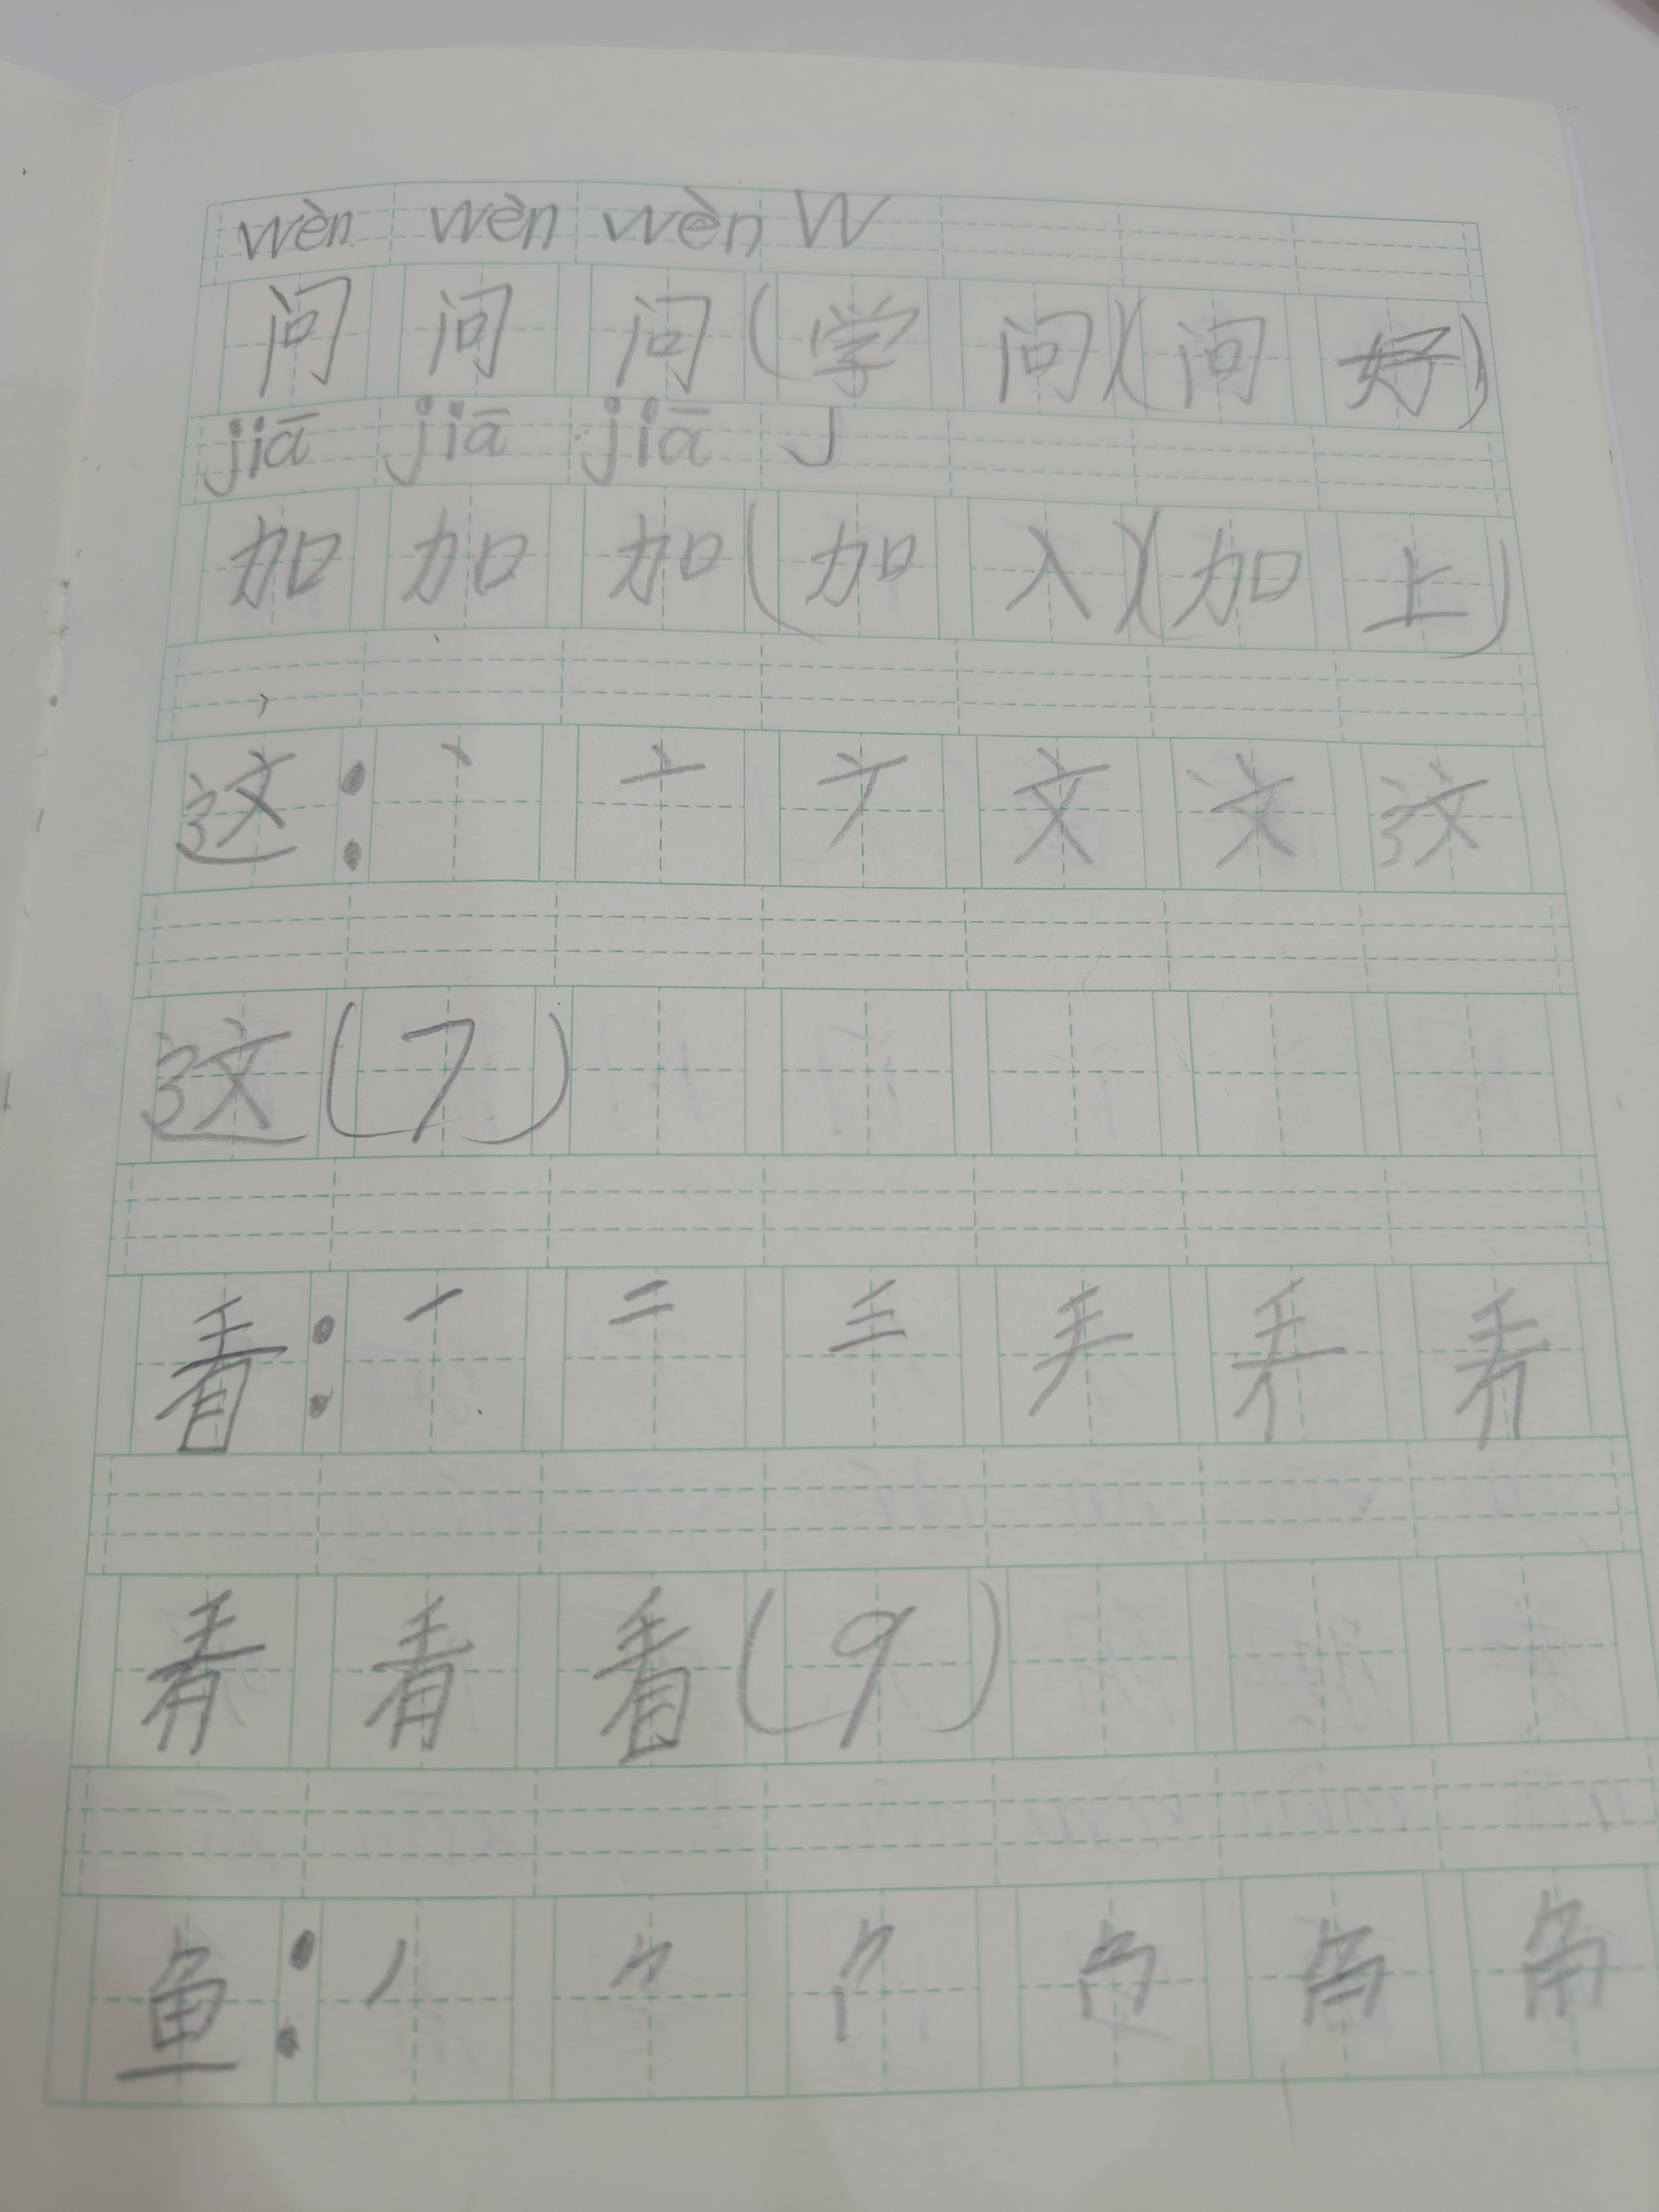 wèn wèn wèn W
问 问 问 (学 问)(问 好)
jiā jiā jiā J
加 加 加 (加 入)(加 上)
这: 丶 亠 ナ 文
这 (7)
看: 一 二 三 手
看 (9)
鱼: 丿 𠂊